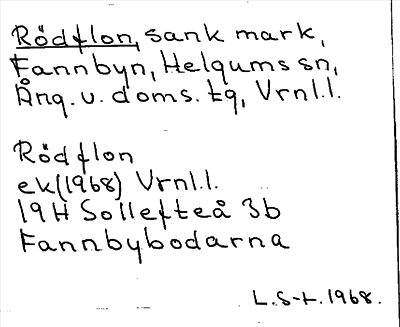 Rödflon, sank mark,
Fannbyn, Helgums sn,
Ång. v. doms. tg, Vrnl.l.
Rödflon
ek(1968) Vrnl.l.
19H Sollefteå 3b
Fannbybodarna
L.S-t. 1968.